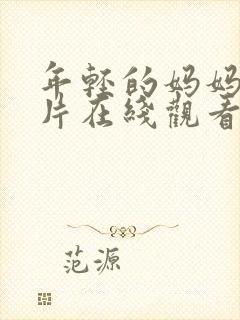 年轻的妈妈
片在綫觀看
范源